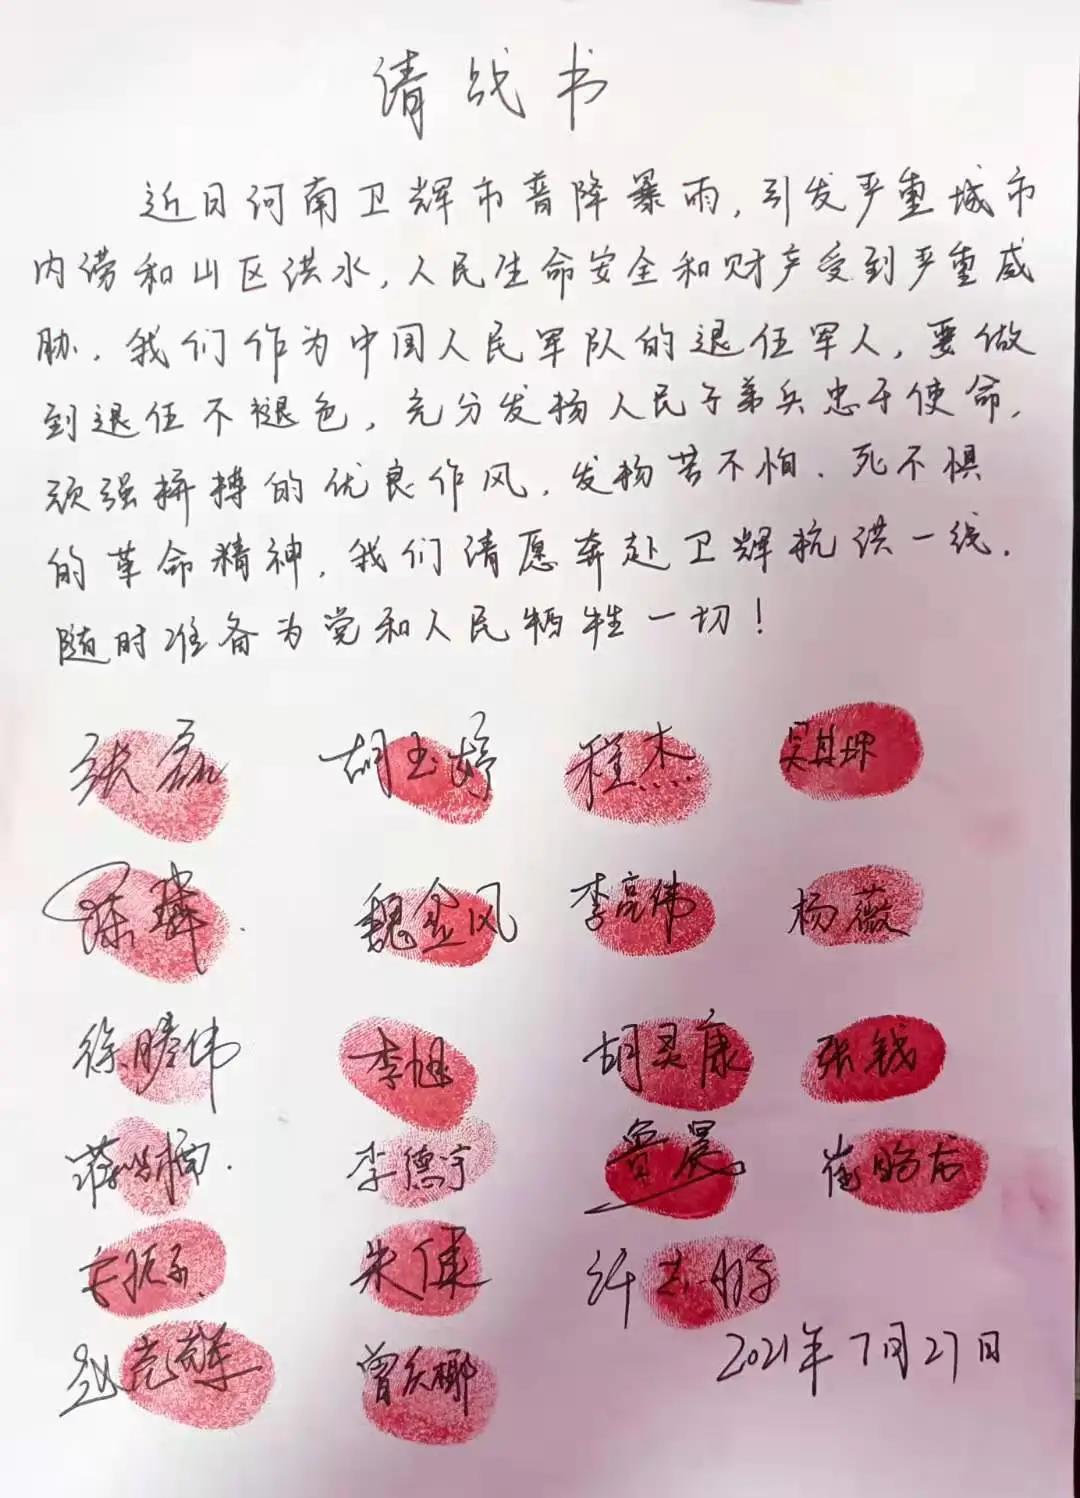 请战书
近日河南卫辉市普降暴雨，引发严重城市
内涝和山区洪水，人民生命安全和财产受到严重威
胁，我们作为中国人民军队的退伍军人，要做
到退伍不褪色，充分发扬人民子弟兵忠于使命，
顽强拼搏的优良作风，发扬苦不怕、死不惧
的革命精神，我们请愿奔赴卫辉抗洪一线，
随时准备为党和人民牺牲一切！
张磊 胡玉婷 程杰 吴其坤
陈璘 魏金风 李亮伟 杨薇
徐 伟 李旭 胡灵康 张钱
蒋 楠 李德宇 鲁晨 崔 龙
朱健 许志鹏
赵克 曾庆椰
2021年7月27日